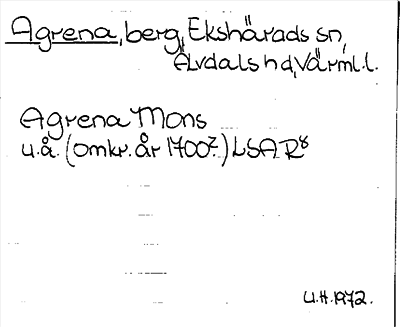 Agrena, berg, Ekshärads sn,
Älvdals hd, Värml. l.
Agrena Mons
u.å. (omkr. år 1700?) LSA R8
U.H. 1972.